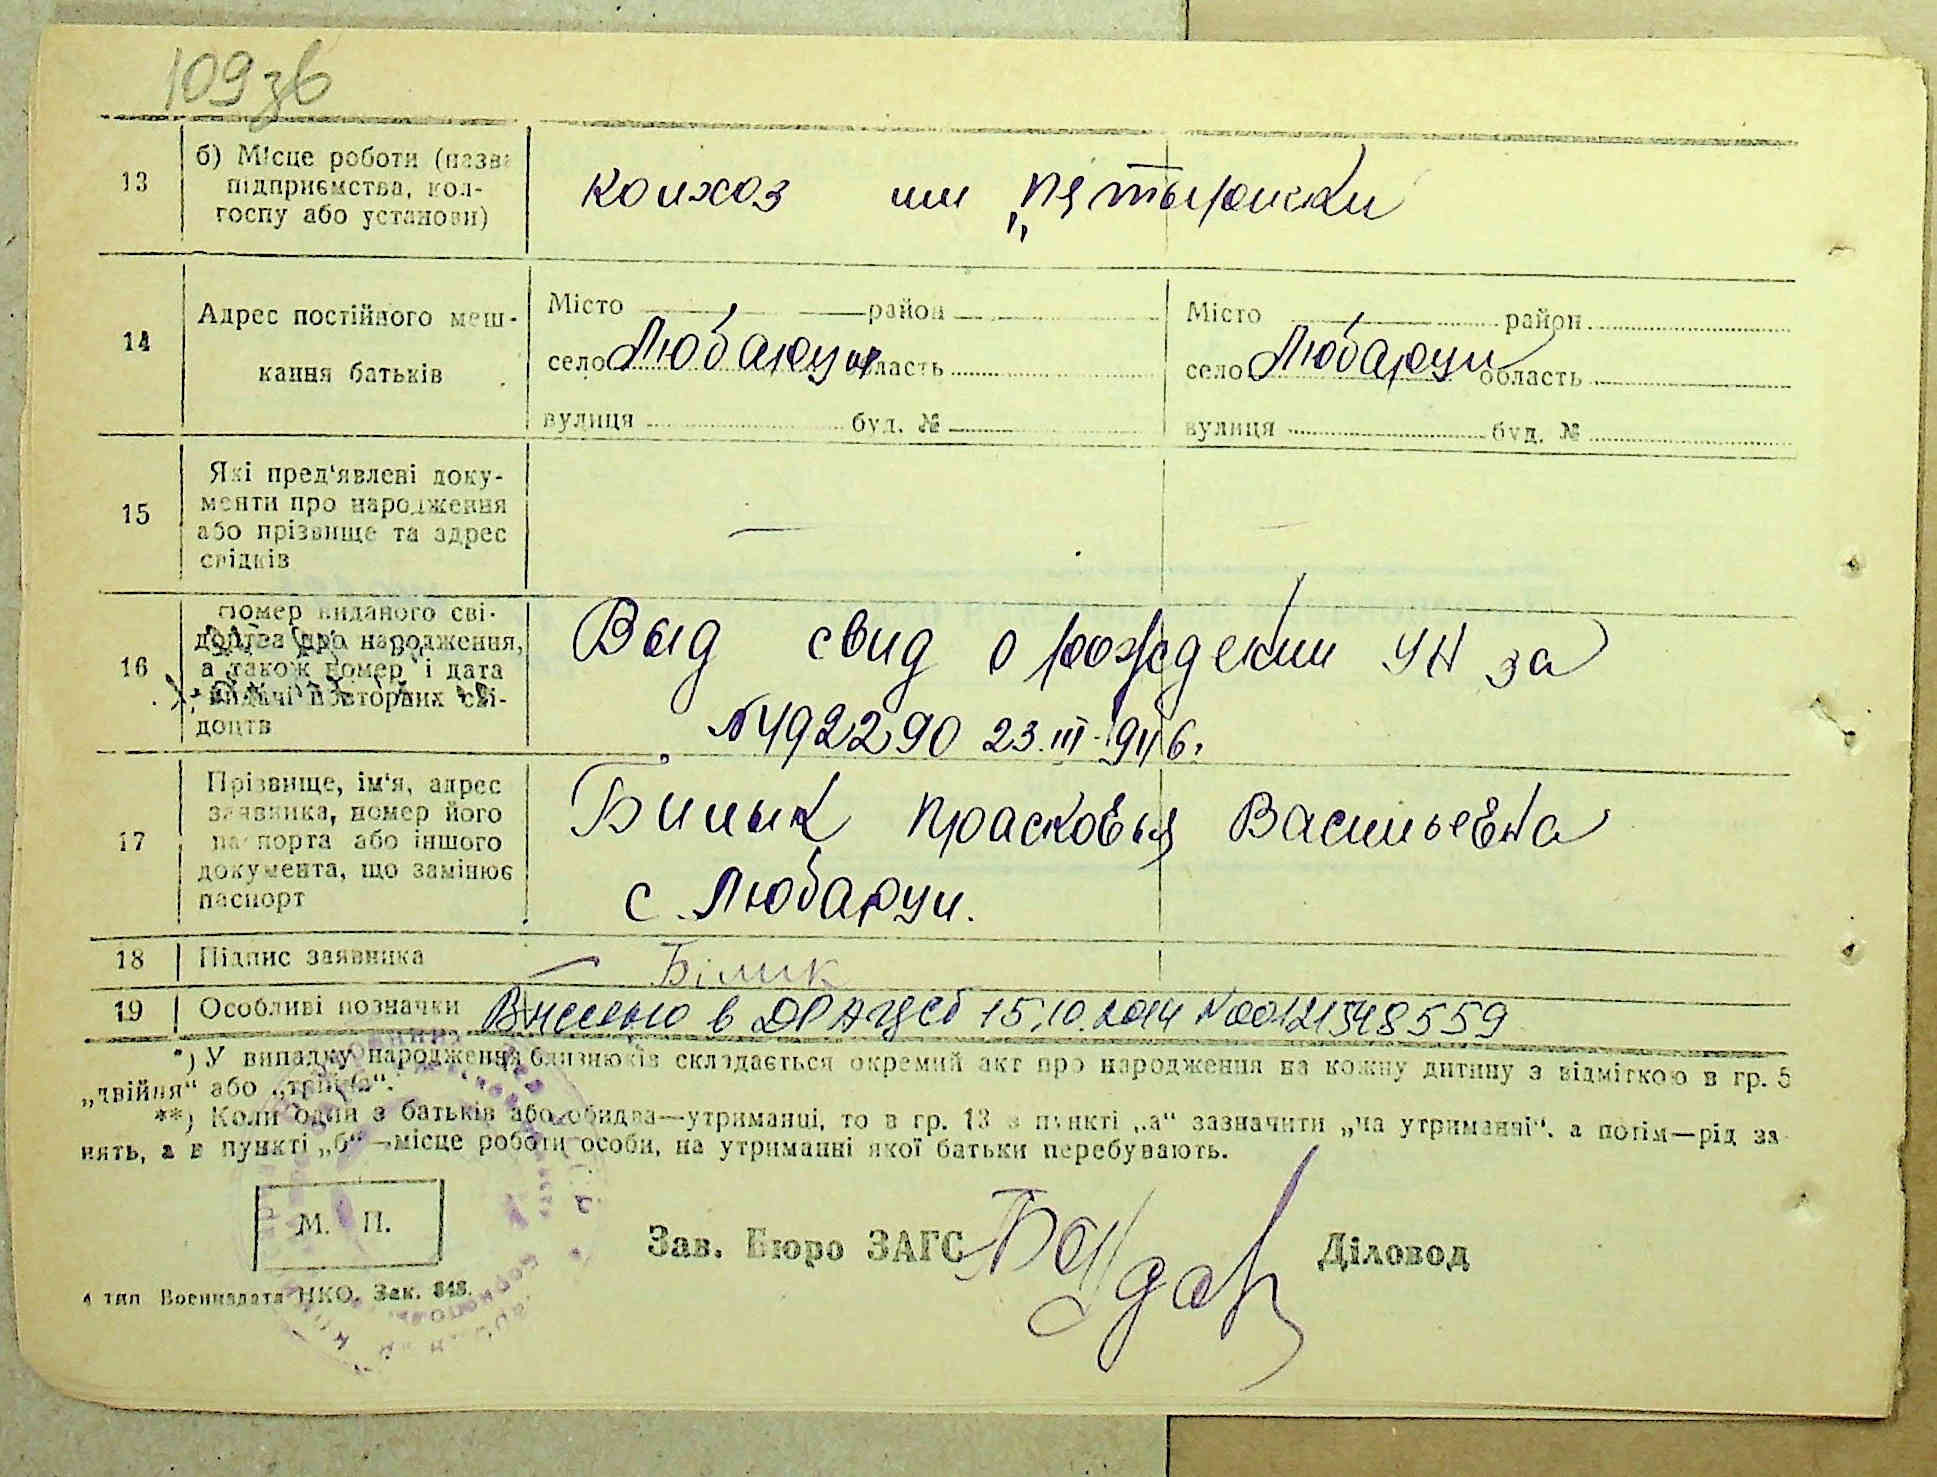 109 зв
13
б) Місце роботи (назва
підприємства, кол-
госпу або установи)
колхоз им „Пятырички
14
Адрес постійного меш-
кання батьків
Місто район
село Любарци область
вулиця буд. №
Місто район
село Любарци область
вулиця буд. №
15
Які пред'явлені доку-
менти про народження
або прізвище та адрес
свідків
16
Номер виданого сві-
доцтва про народження,
а також номер і дата
видачі повторних сві-
доцтв
Выд свид о рождении УН за
№492290 23.III-1946.
17
Прізвище, ім'я, адрес
заявника, номер його
паспорта або іншого
документа, що замінює
паспорт
Билык Прасковья Васильевна
с. Любарци.
18
Підпис заявника
Білик
19
Особливі позначки
Внесено в ДРАЦСГ 15.10.2014 N00121548559
*) У випадку народження близнюків складається окремий акт про народження на кожну дитину з відміткою в гр. 5
„двійня“ або „трійня“.
**) Коли один з батьків або обидва—утриманці, то в гр. 13 в пункті „а“ зазначити „на утриманні“, а потім—рід за-
нять, а в пункті „б“—місце роботи особи, на утриманні якої батьки перебувають.
М. П.
Зав. Бюро ЗАГС
Діловод
4 тип Воениздата НКО. Зак. 848.